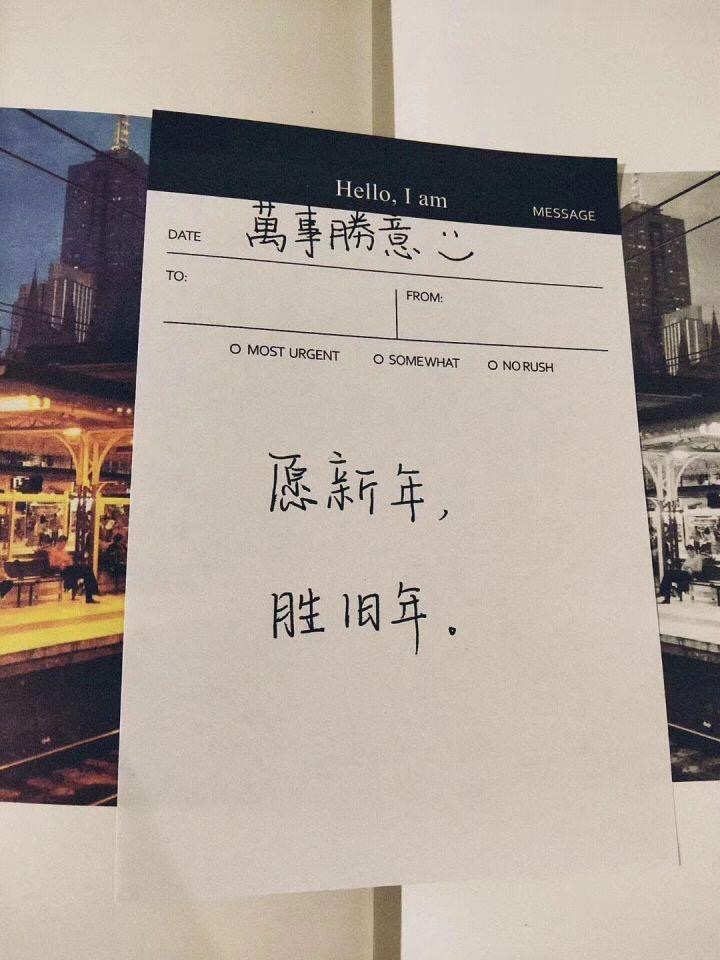 Hello, I am
MESSAGE
DATE 萬事勝意 :)
TO:
FROM:
O MOST URGENT O SOMEWHAT O NO RUSH
愿新年,
胜旧年.